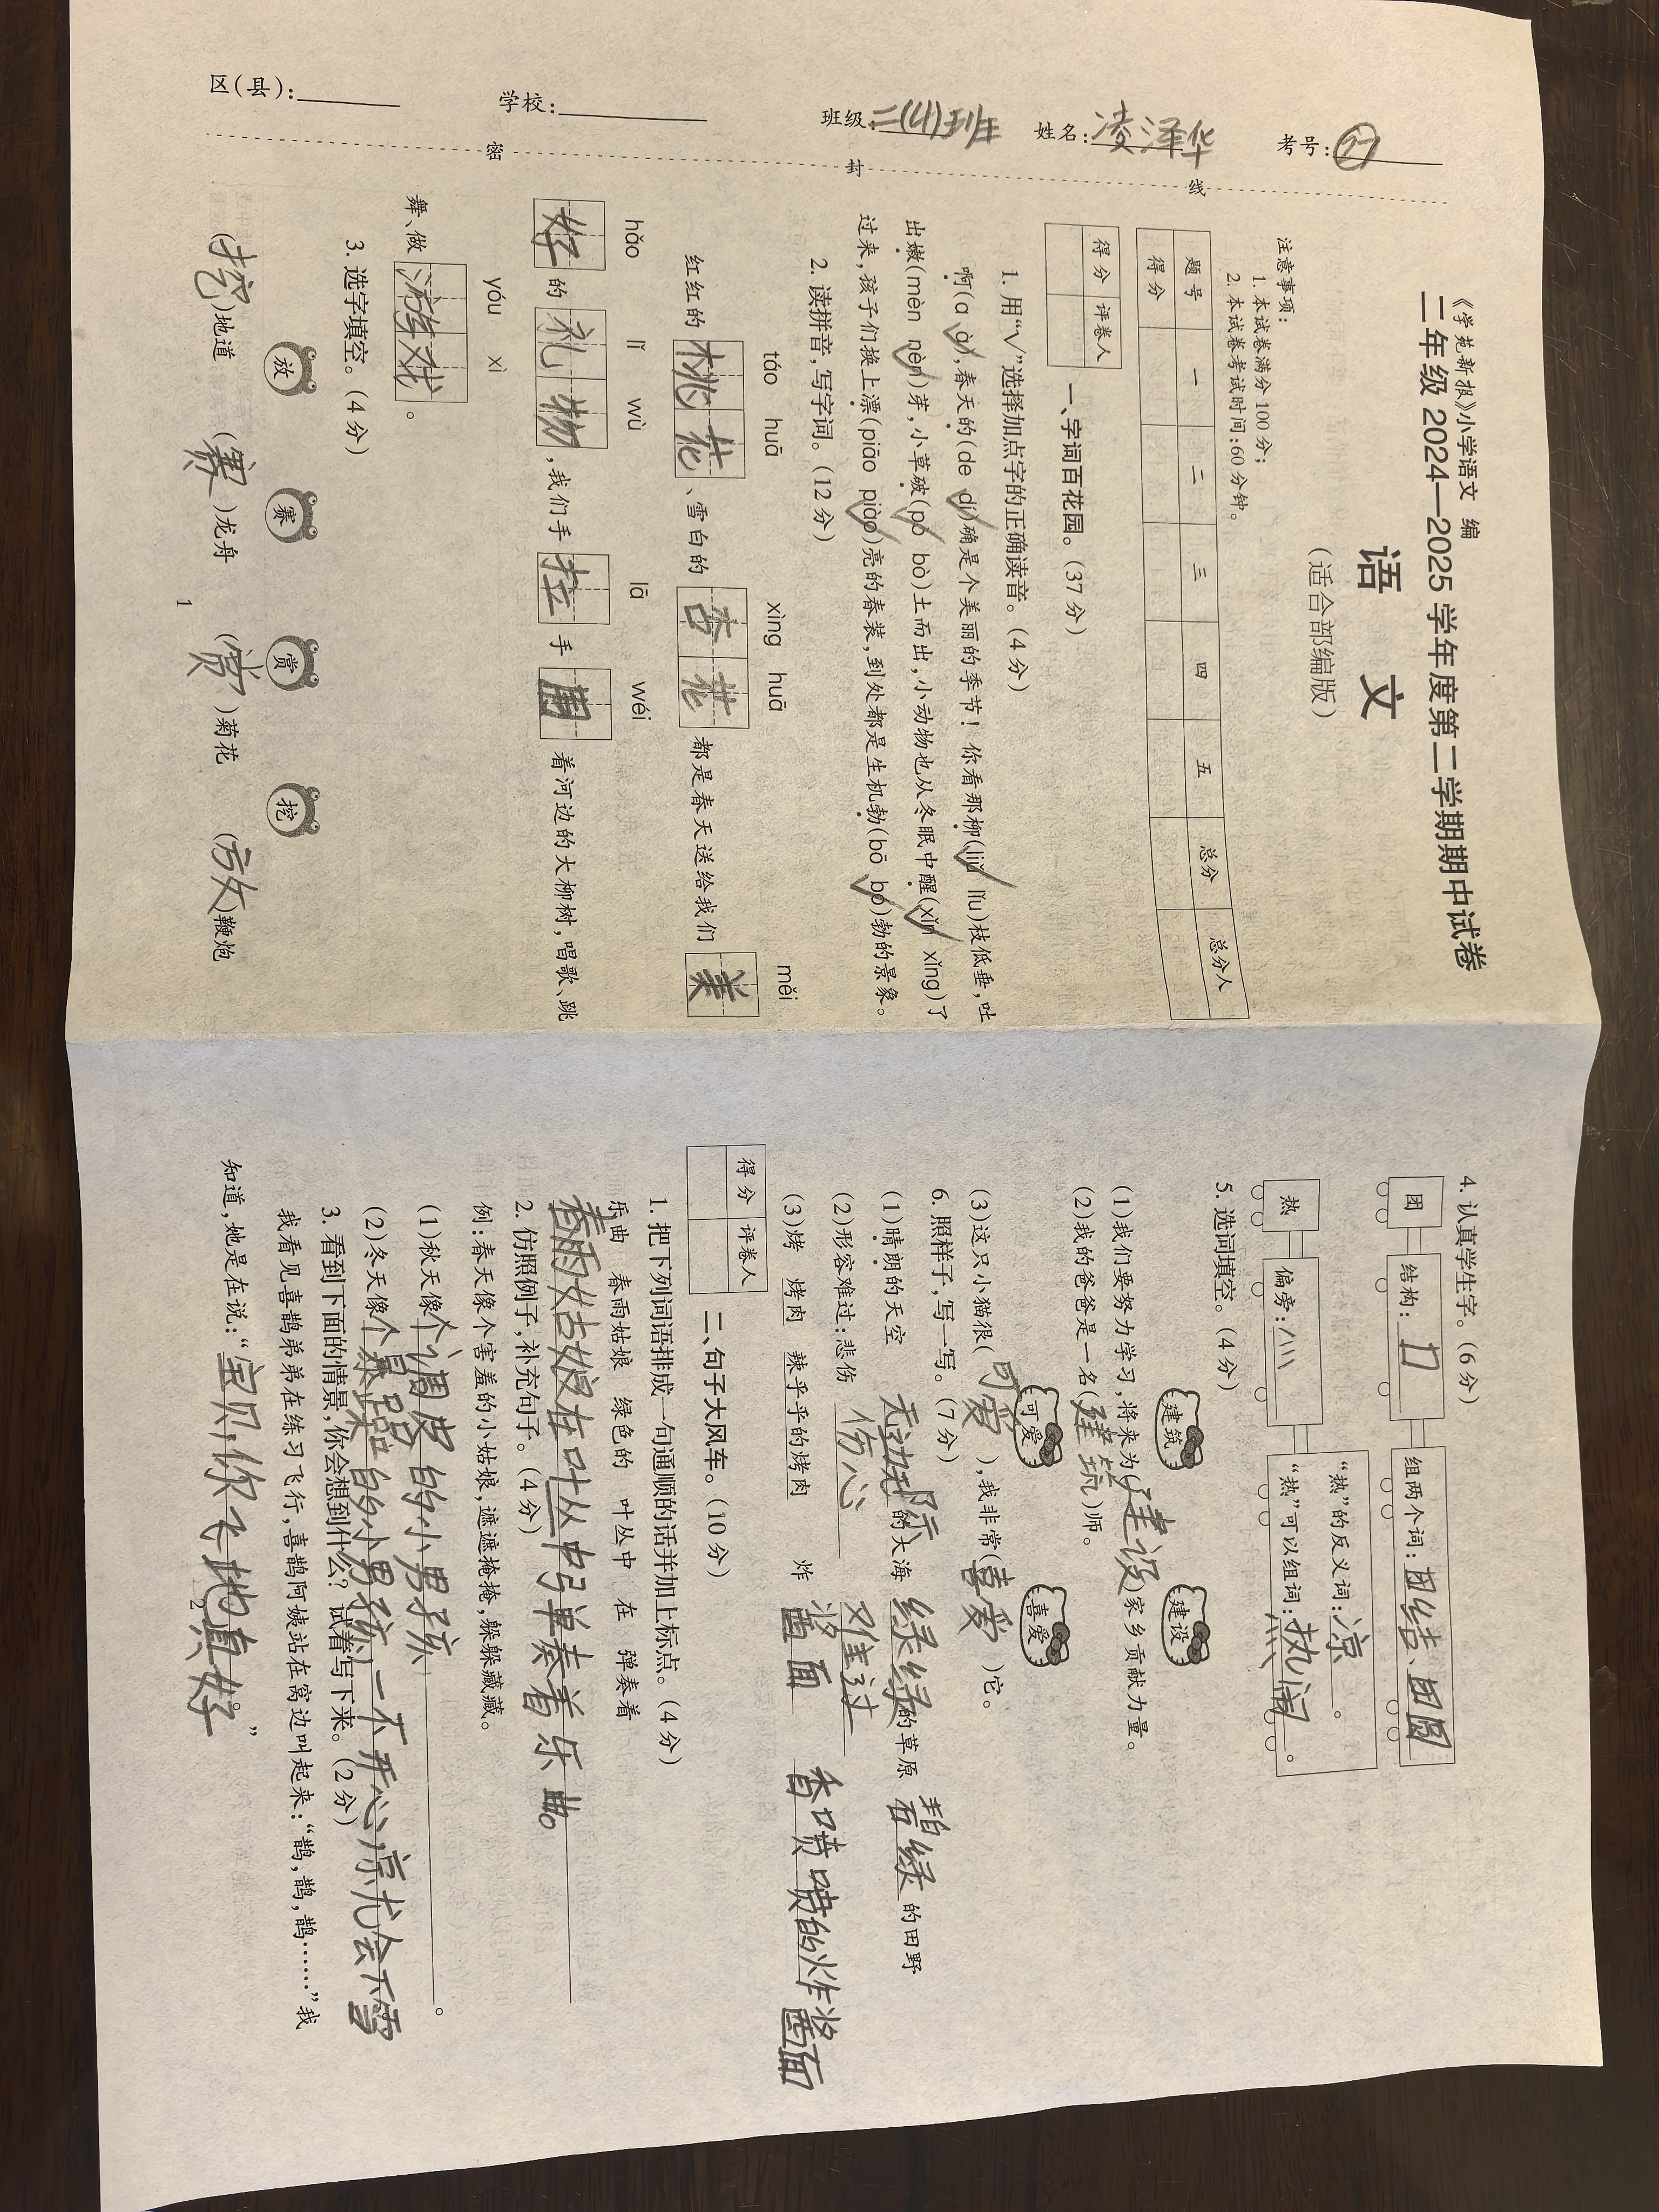 区(县):
学校:
班级:二(4)班
姓名:凌泽华
考号:27
密 封 线
《学苑新报》小学语文 编
二年级 2024—2025 学年度第二学期期中试卷
语 文
(适合部编版)
注意事项:
1. 本试卷满分100分;
2. 本试卷考试时间:60分钟。
题号 一 二 三 四 五 总分 总分人
得分
得分 评卷人
一、字词百花园。(37分)
1. 用“√”选择加点字的正确读音。(4分)
啊(a à√),春天的(de dí√)确是个美丽的季节!你看那柳(liǔ√ lǐu)枝低垂,吐
出嫩(mèn nèn√)芽,小草破(pò√ bò)土而出,小动物也从冬眠中醒(xǐn√ xǐng)了
过来,孩子们换上漂(piāo piào√)亮的春装,到处都是生机勃(bō bó√)勃的景象。
2. 读拼音,写字词。(12分)
táo huā xìng huā měi
红红的桃花、雪白的杏花都是春天送给我们美
hǎo lǐ wù lā wéi
好的礼物,我们手拉手围着河边的大柳树,唱歌、跳
yóu xì
舞、做游戏。
3. 选字填空。(4分)
放 赛 赏 挖
(挖)地道 (赛)龙舟 (赏)菊花 (放)鞭炮
1
4. 认真学生字。(6分)
团 结构:囗 组两个词:团结、团圆
热 偏旁:灬 “热”的反义词:凉。
“热”可以组词:热闹。
5. 选词填空。(4分)
建筑 建设
(1)我们要努力学习,将来为(建设)家乡贡献力量。
(2)我的爸爸是一名(建筑)师。
可爱 喜爱
(3)这只小猫很(可爱),我非常(喜爱)它。
6. 照样子,写一写。(7分)
(1)晴朗的天空 无边无际的大海 绿绿的草原 碧绿的田野
(2)形容难过:悲伤 伤心 难过
(3)烤 烤肉 辣乎乎的烤肉 炸 酱面 香喷喷的炸酱面
得分 评卷人
二、句子大风车。(10分)
1. 把下列词语排成一句通顺的话并加上标点。(4分)
乐曲 春雨姑娘 绿色的 叶丛中 在 弹奏着
春雨姑娘在叶丛中弹奏着乐曲。
2. 仿照例子,补充句子。(4分)
例:春天像个害羞的小姑娘,遮遮掩掩,躲躲藏藏。
(1)秋天像个调皮的小男孩。
(2)冬天像个暴躁的小男孩,一不开心就会下雪
3. 看到下面的情景,你会想到什么?试着写下来。(2分)
我看见喜鹊弟弟在练习飞行,喜鹊阿姨站在窝边叫起来:“鹊,鹊,鹊……”我
知道,她是在说:“宝贝,你飞地真好。”
2